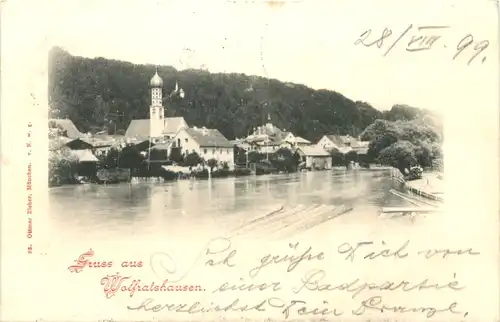 28/VIII 99.
Gruss aus
Wolfratshausen.
Ich grüße Dich von
einer Radpartie
herzlichst Dein
Ottmar Zieher, München.